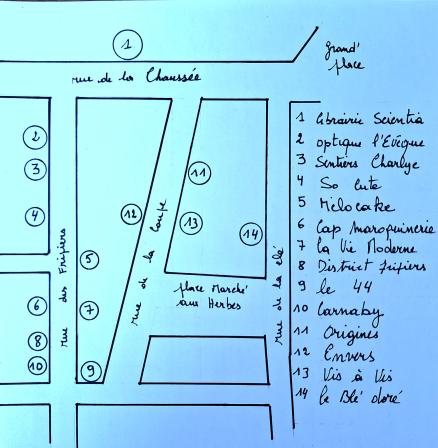 1
Grand'
place
rue de la Chaussée
1 librairie Scientia
2 optique l'Évêque
3 Sentiers Charlye
4 So cute
5 Milocake
6 Cap maroquinerie
7 la Vie Moderne
8 District fripiers
9 le 44
10 Carnaby
11 Origines
12 Envers
13 Vis à Vis
14 le Blé doré
2
3
4
11
12
13
14
5
rue des Fripiers
rue de la Coupe
rue de la clé
place Marché
aux Herbes
6
7
8
10
9